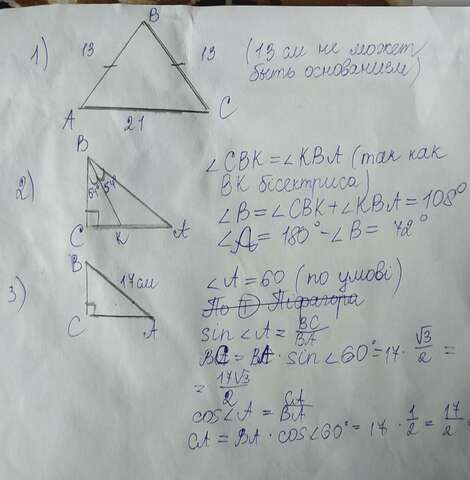 1)
B
13
13
A
C
21
(13 см не может
быть основанием)
2)
B
C
K
A
∠CBK = ∠KBA (так как
BK бісектриса)
∠B = ∠CBK + ∠KBA = 108°
∠A = 180° - ∠B = 72°
3)
B
17 см
C
A
∠A = 60 (по умові)
По Т Піфагора
sin∠A = BC/BA
BC = BA · sin∠60° = 17 · √3/2 =
= 17√3/2
cos∠A = CA/BA
CA = BA · cos∠60° = 17 · 1/2 = 17/2 =